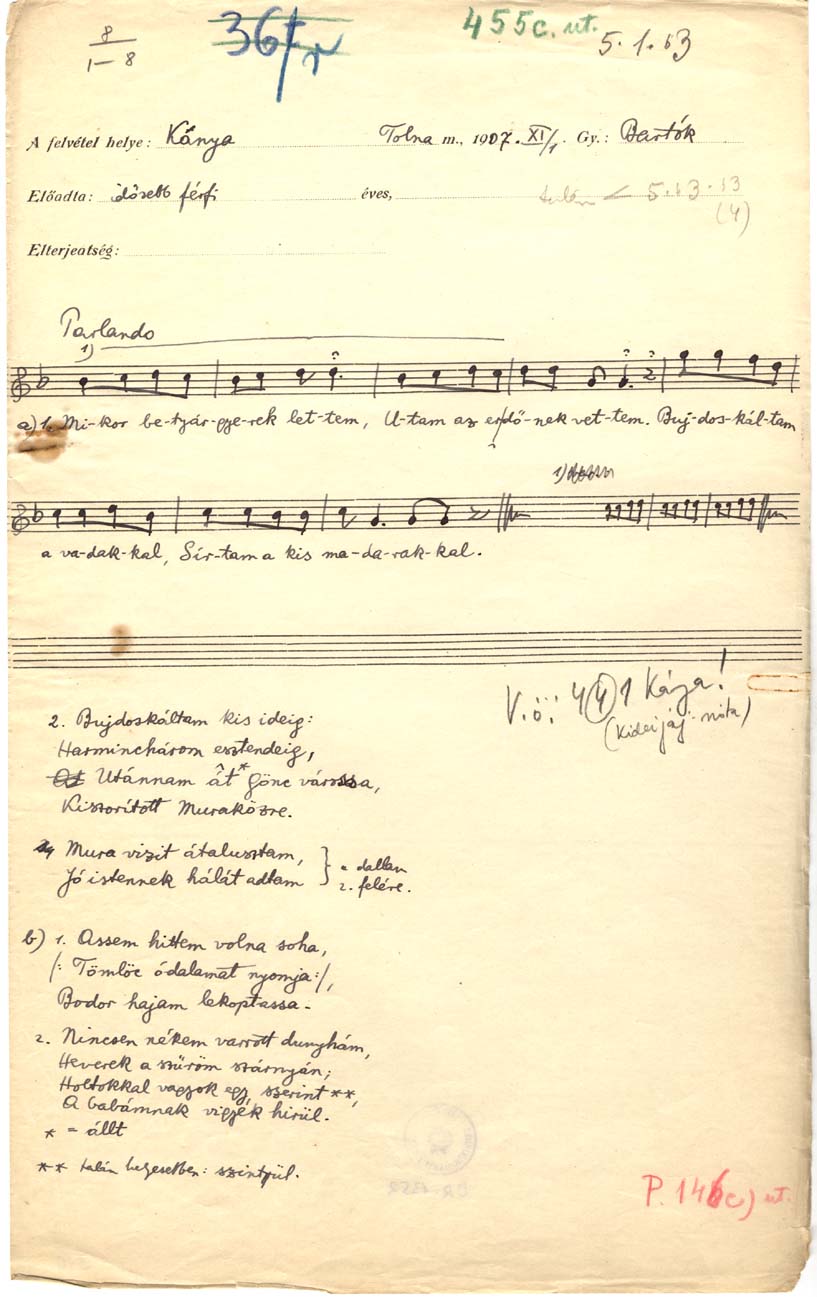 8
1–8
367/r
455c. ut.
5. 1. b3
A felvétel helye: Kánya Tolna m., 1907. XI/1. Gy.: Bartók
Előadta: idősebb férfi éves, talán < 5. b3. b3
(4)
Elterjedtség:
Parlando
1)
a) 1. Mi-kor be-tyár-gye-rek let-tem, U-tam az erdő-nek vet-tem. Buj-dos-kál-tam
1)
a va-dak-kal, Sír-tam a kis ma-da-rak-kal.
V.ö.: 441 Kánya!
(Kidei jáj-nóta)
2. Bujdoskáltam kis ideig:
Harminchárom esztendeig,
Utánnam át* Gönc várossa,
Kiszorított Muraközre.
Mura vizit átalusztam,
Jó istennek hálát adtam } a dallam
2. felére.
b) 1. Assem hittem volna soha,
/: Tömlöc ódalamat nyomja :/,
Bodor hajam lekoptassa.
2. Nincsen nékem varrott dunyhám,
Heverek a szűröm szárnyán;
Holtokkal vagyok egy szerint **,
A babámnak vigyék hirül.
* = állt
** talán helyesebben: szintjül.
P. 146c) ut.